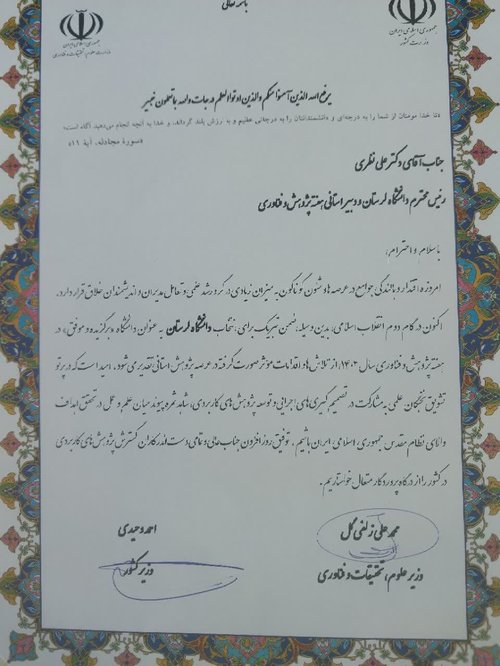 باسمه تعالی
جمهوری اسلامی ایران
وزارت کشور
جمهوری اسلامی ایران
وزارت علوم، تحقیقات و فناوری
یرفع الله الذین آمنوا منکم والذین اوتوا العلم درجات والله بما تعملون خبیر
خدا مومنان از شما را به درجه‌ای و دانشمندانتان را به درجاتی عظیم و با ارزش بلند گرداند، و خدا به آنچه انجام می‌دهید آگاه است»
«سورهٔ مجادله، آیهٔ ۱۱»
جناب آقای دکتر علی نظری
رئیس محترم دانشگاه لرستان و دبیر استانی هفته پژوهش و فناوری
با سلام و احترام،
امروزه اقتدار و بالندگی جوامع در عرصه‌ها و شئون گوناگون به میزان زیادی در گرو رشد علمی و تعامل مدیران و اندیشمندان خلاق قرار دارد.
اکنون در گام دوم انقلاب اسلامی، بدین وسیله، ضمن تبریک برای انتخاب دانشگاه لرستان به عنوان دانشگاه «برگزیده و موفق» در
هفته پژوهش و فناوری سال ۱۴۰۲، از تلاش‌ها و اقدامات مؤثر صورت گرفته در عرصه پژوهش استانی تقدیر می‌شود. امید است که در پرتو
تشویق نخبگان علمی به مشارکت در تصمیم گیری‌های اجرایی و توسعه پژوهش‌های کاربردی، شاهد ثمره پیوند میان علم و عمل در تحقق اهداف
والای نظام مقدس جمهوری اسلامی ایران باشیم. توفیق روز افزون جناب عالی و تمامی دست اندرکاران گسترش پژوهش‌های کاربردی
در کشور را از درگاه پروردگار متعال خواستاریم.
محمد علی زلفی گل
وزیر علوم، تحقیقات و فناوری
احمد وحیدی
وزیر کشور